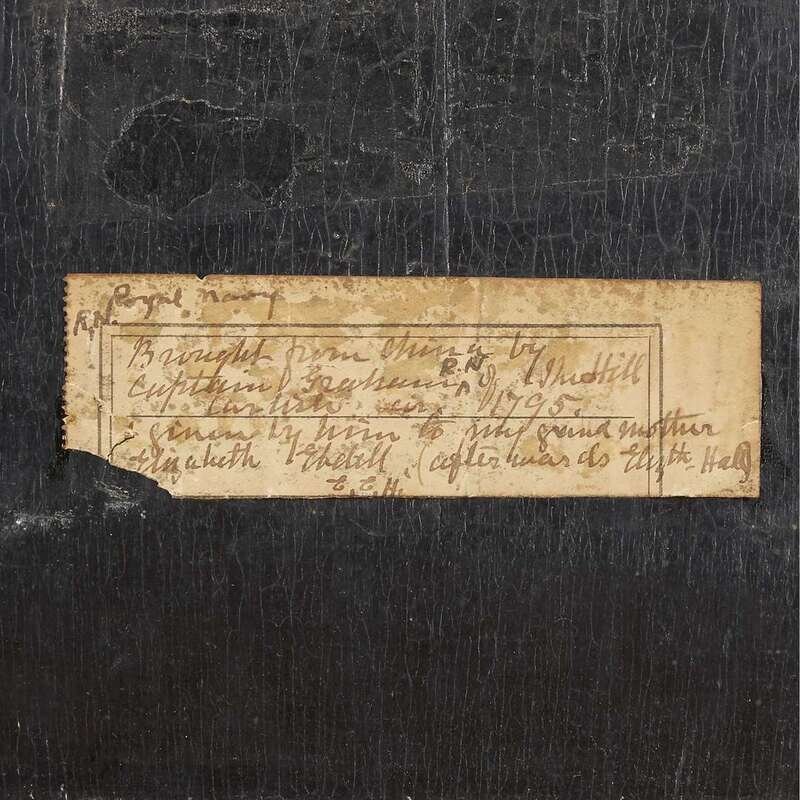 Royal Navy
R.N.
Brought from China by
Captain Graham R.N. of The Hill
Carlisle 1795
given by him to my grandmother
Elizabeth (afterwards Elizth Hall)
E.E.H.